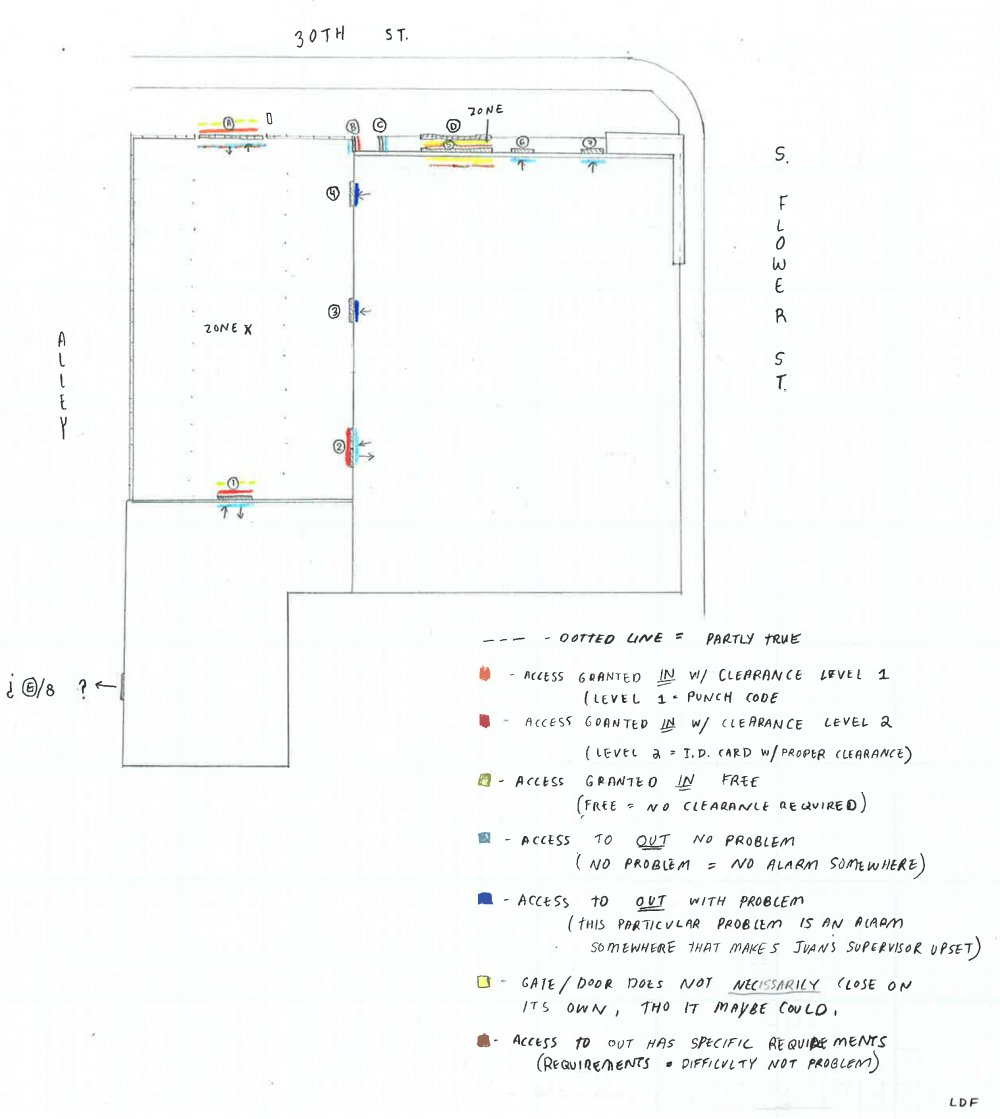 30TH ST.
ZONE
A
B
C
D
5
6
7
S. FLOWER ST.
4
3
ZONE X
ALLEY
2
1
¿ E/8 ?
--- - DOTTED LINE = PARTLY TRUE
- ACCESS GRANTED IN W/ CLEARANCE LEVEL 1
(LEVEL 1 = PUNCH CODE
- ACCESS GRANTED IN W/ CLEARANCE LEVEL 2
(LEVEL 2 = I.D. CARD W/PROPER CLEARANCE)
- ACCESS GRANTED IN FREE
(FREE = NO CLEARANCE REQUIRED)
- ACCESS TO OUT NO PROBLEM
(NO PROBLEM = NO ALARM SOMEWHERE)
- ACCESS TO OUT WITH PROBLEM
(THIS PARTICULAR PROBLEM IS AN ALARM
SOMEWHERE THAT MAKES JUAN'S SUPERVISOR UPSET)
- GATE/DOOR DOES NOT NECISSARILY CLOSE ON
ITS OWN, THO IT MAYBE COULD.
- ACCESS TO OUT HAS SPECIFIC REQUIREMENTS
(REQUIREMENTS = DIFFICULTY NOT PROBLEM)
LDF